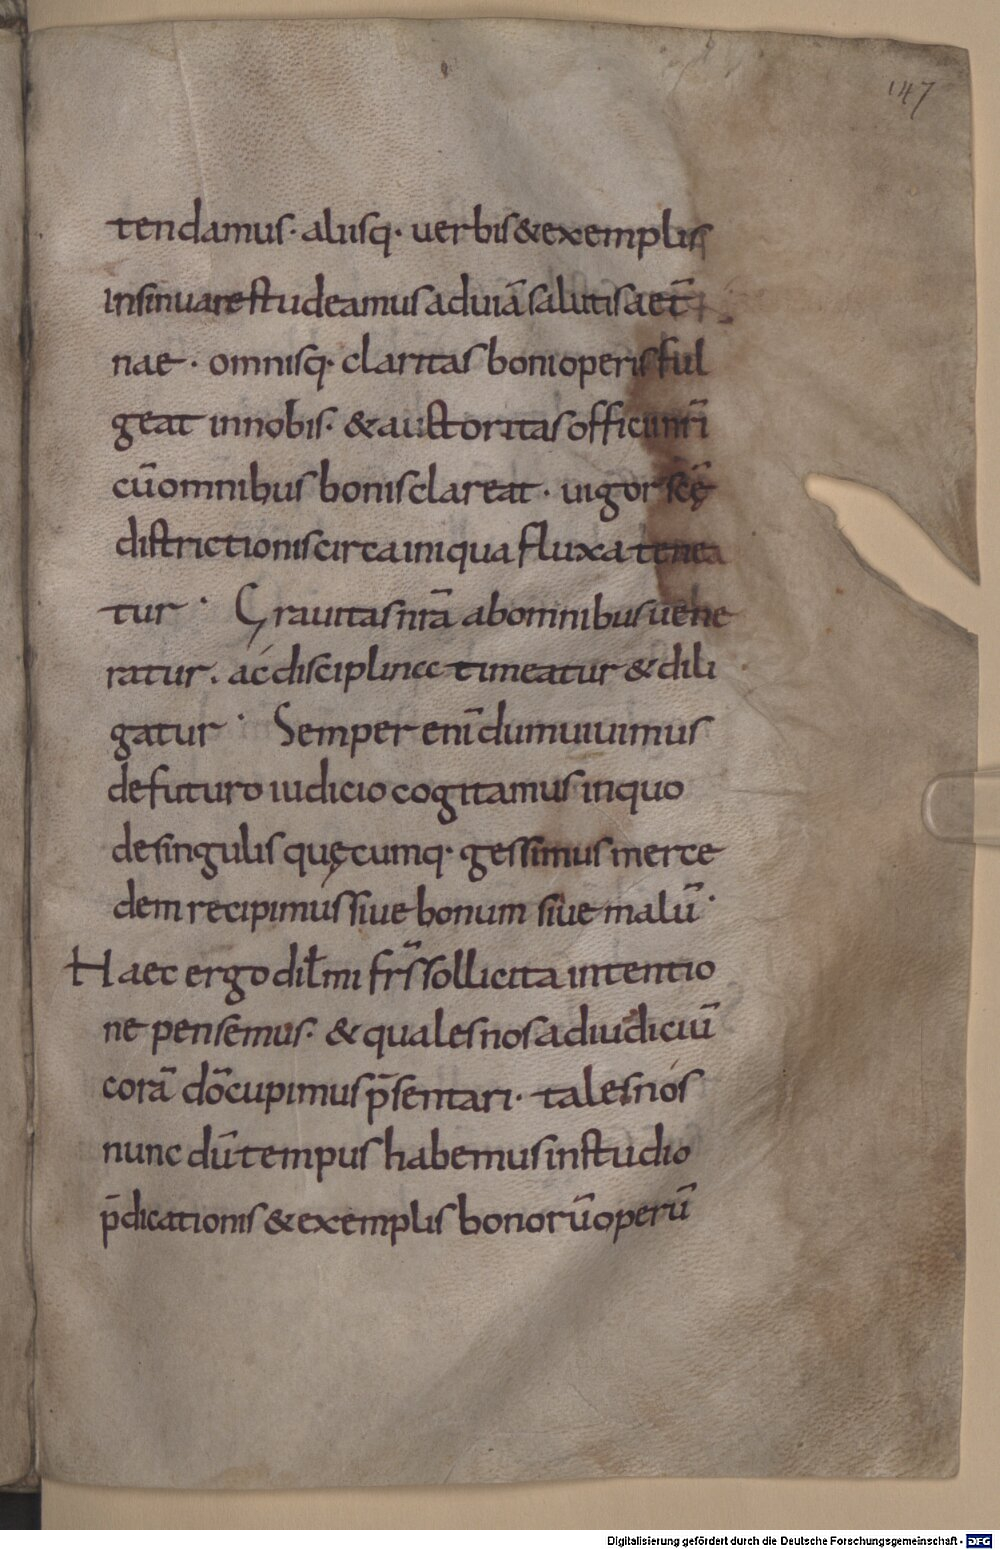 147
tendamus· aliisq· uerbis & exemplis
insinuare studeamus ad uiā salutis aet̄
nae· omnisq· claritas boni operis ful
geat in nobis· & auctoritas officii nr̄i
cū omnibus bonis clareat· uigor sc̄ę
districtionis circa iniqua fluxa tenea
tur· Grauitas nr̄a ab omnibus uene
ratur. ac disciplina timeatur & dili
gatur· Semper enī dum uiuimus
de futuro iudicio cogitamus in quo
de singulis quęcumq· gessimus merce
dem recipimus siue bonum siue malū·
Haec ergo dil̄mi fr̄s sollicita intentio
ne pensemus· & quales nos ad iudiciū
corā dō cupimus p̄sentari· tales nos
nunc dū tempus habemus in studio
p̄dicationis & exemplis bonorū operū
Digitalisierung gefördert durch die Deutsche Forschungsgemeinschaft - DFG